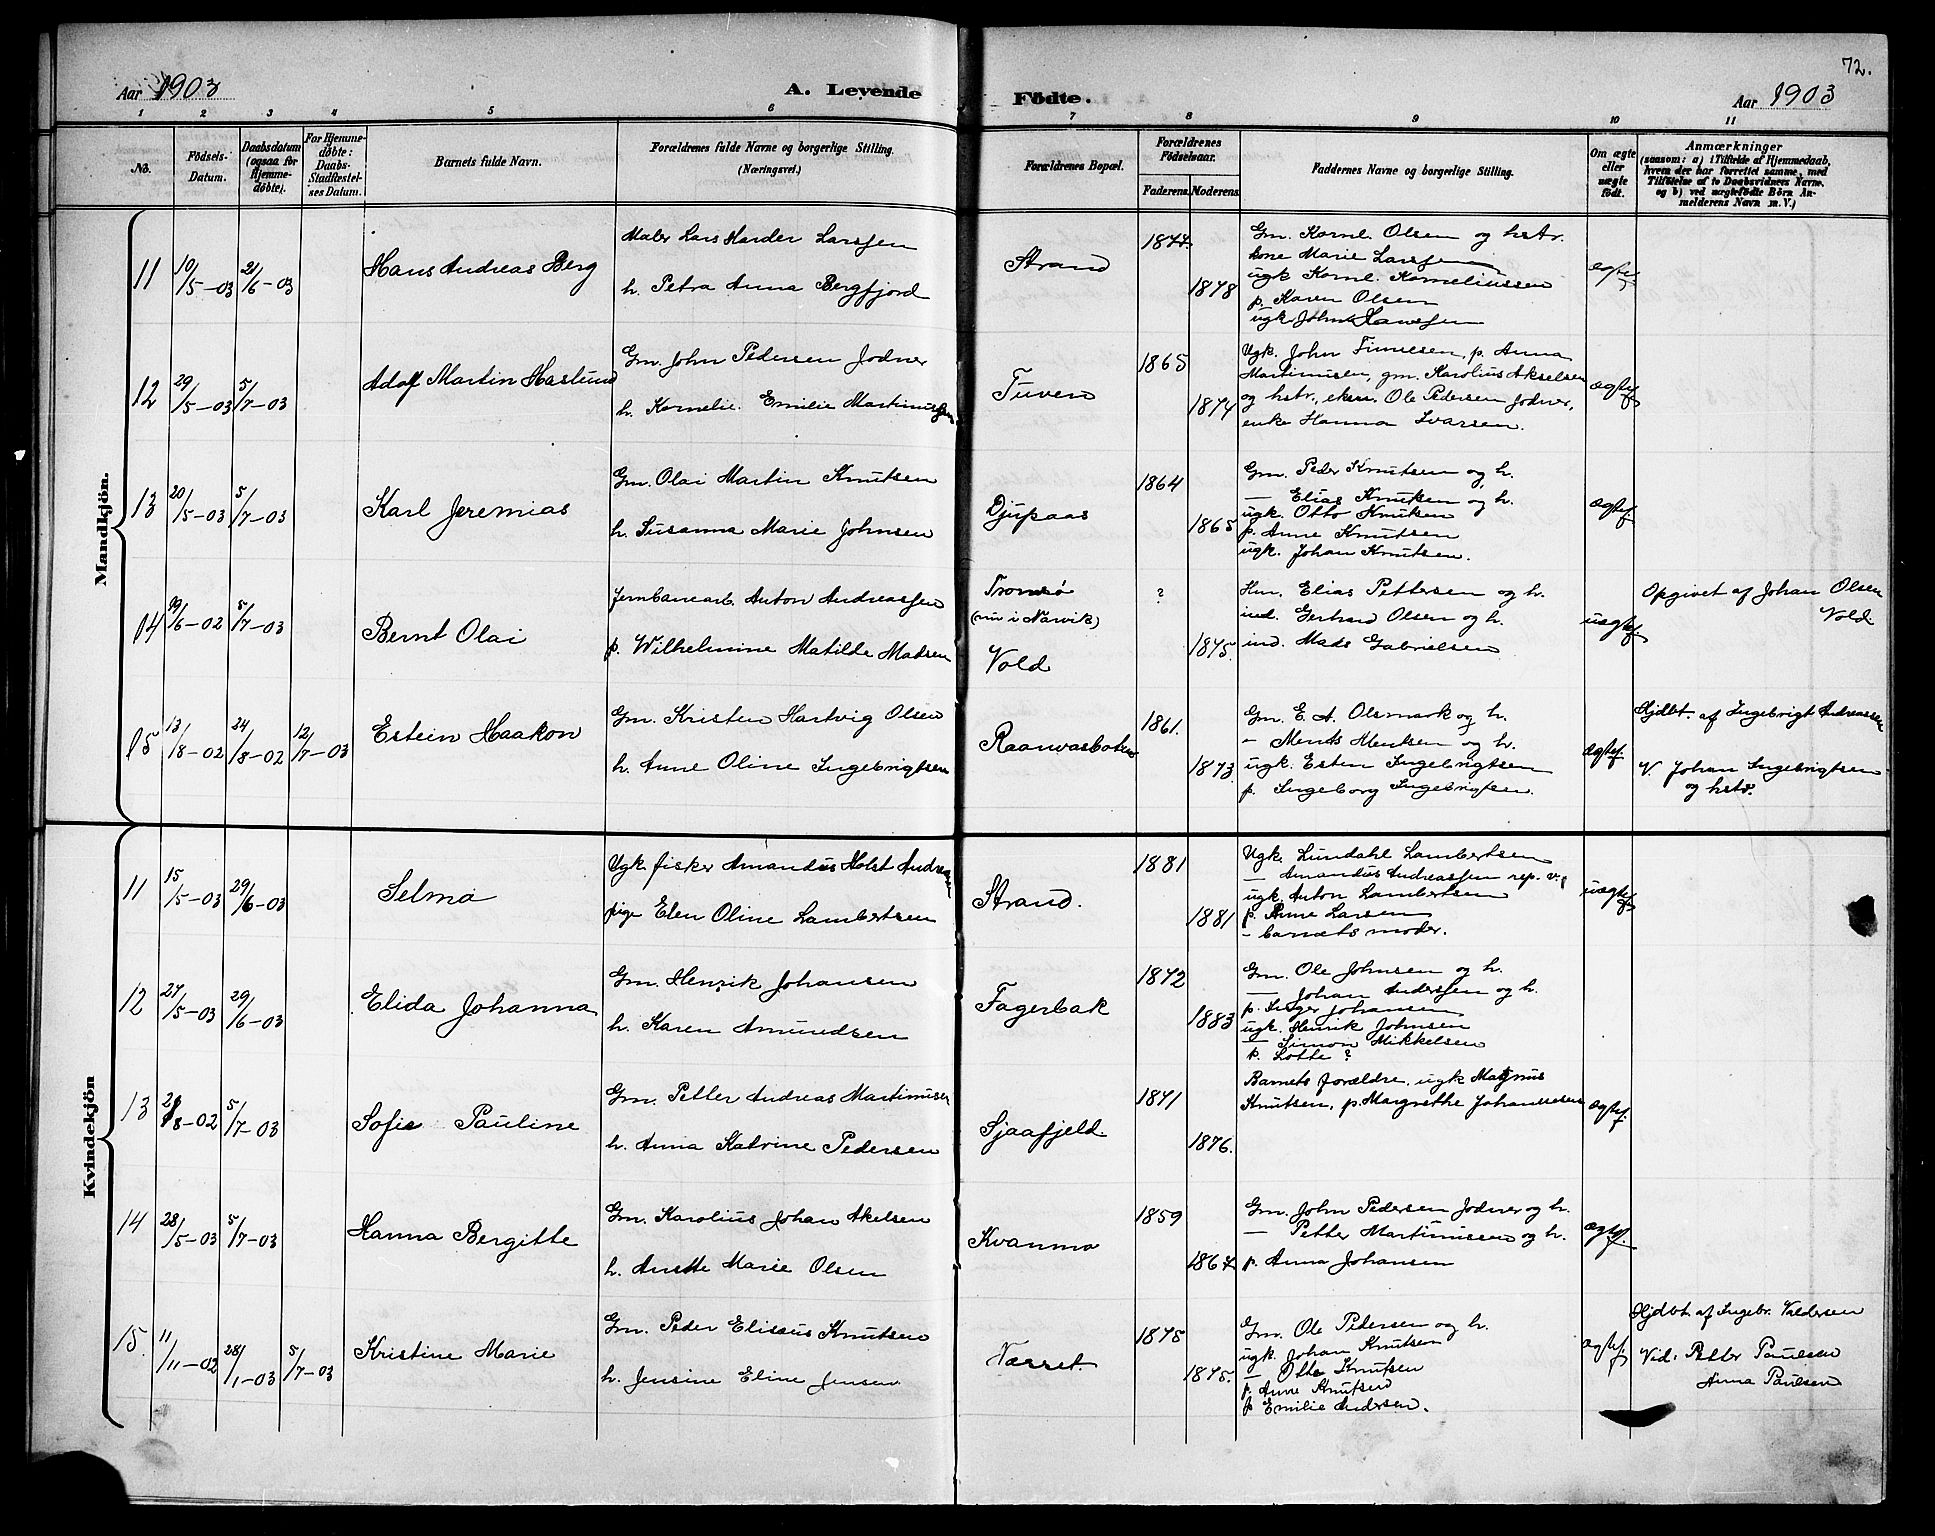 Aar 1903
A. Levende
Födte.
Aar 1903
72.
1 2 3 4 5 6 7 8 9 10 11
No.
Födsels-Datum.
Daabsdatum (ogsaa for Hjemmedøbte).
For Hjemmedøbte: Daabs-Stadfæstelses Datum.
Barnets fulde Navn.
Forældrenes fulde Navne og borgerlige Stilling. (Næringsvei.)
Forældrenes Bopæl.
Forældrenes Födselsaar.
Faderens. Moderens.
Faddernes Navne og borgerlige Stilling.
Om ægte eller uægte födt.
Anmærkninger
(saasom: a) i Tilfælde af Hjemmedaab, hvem der har forrettet samme, med Tilföielse af to Daabsvidners Navne, og b) ved uægtefödte Börn Anmelderens Navn m. V.)
Mandkjön.
11 10/5-03 21/6-03
Hans Andreas Berg
Maler Lars Harder Larssen
h. Petra Anna Bergfjord
Strand
1877.
1878
Gm. Kornl. Olsen og hstr.
kone Marie Larssen
ugk. Kornl. Korneliussen
p. Karen Olsen
ugk. John Hanssen
ægtef
12 29/5-03 5/7-03
Adolf Martin Haslund
Gm. John Pedersen Jodner
h. Kornelie Emilie Martinussen
Tuven
1865
1874
Ugk. John Finnesen, p. Anna
Martinusen, gm. Karolius Akselsen
og hstr., ekem. Ole Pedersen Jodner,
enke Hanna Ivarsen.
ægtef
13 20/5-03 5/7-03
Karl Jeremias
Gm. Olai Martin Knutsen
h. Susanna Marie Johnsen
Djupaas
1864
1865
Gm. Peder Knutsen og h.
— Elias Knutsen og h.
ugk. Otto Knutsen
p. Anne Knutsen
ugk. Johan Knutsen.
ægtef
14 19/6-02 5/7-03
Bernt Olai
Jernbanearb. Anton Andreassen
p. Wilhelmine Matilde Madsen
Tromsø
(nu i Narvik)
Vold
?
1875.
Hm. Elias Pettersen og h.
ind. Gerhard Olsen og h.
ind. Mads Gabrielsen
uægtef
Opgivet af Johan Olsen
Vold.
15 13/8-02 24/8-02 12/7-03
Estein Haakon
Gm. Kristen Hartvig Olsen
h. Anne Oline Ingebrigtsen
Raanvasbotn
1861.
1873
Gm. E. A. Olsmark og h.
- Ments Mentsen og h.
ugk. Esten Ingebrigtsen
p. Ingeborg Ingebrigtsen.
ægtef.
Hjdbt. af Ingebrigt Andreassen
V. Johan Ingebrigtsen
og hstr.
Kvindekjön
11 15/5-03 29/6-03
Selma
Ugk. fisker Amandus Holst Andreassen
pige Elen Oline Lambertsen
Strand.
1881
1881
Ugk. Lundahl Lambertsen
— Amandus Andreassen rep. v.
ugk. Anton Lambertsen
p. Anne Larsen
- barnets moder.
uægtef
12 27/5-03 29/6-03
Elida Johanna
Gm. Henrik Johansen
h. Karen Amundsen
Fagerbak
1872
1883
Gm. Ole Johnsen og h.
— Johan Anderssen og h.
p. Inger Johansen
ugk. Henrik Johnsen
— Simon Mikkelsen
p. Lotte ?
13 8-02 5/7-03
Sofie Pauline
Gm. Petter Andreas Martinusen
h. Anna Katrine Pedersen
Sjaafjeld.
1871
1876.
Barnets forældre, ugk Magnus
Knutsen, p. Margrethe Johannesen
ægtef.
14 28/5-03 5/7-03
Hanna Bergitte
Gm. Karolius Johan Akelsen
h. Anette Marie Olsen
Kvanmo
1859
1867
Gm. John Pedersen Jodner og h.
— Petter Martinussen og h.
p. Anna Johansen
ægtef.
15. 11/11-02 28/1-03 5/7-03
Kristine Marie
Gm. Peder Eliseus Knutsen
h. Jensine Eline Jensen
Næsset
1875
1875.
Gm. Ole Pedersen og h.
ugk. Johan Knutsen
— Otto Knutsen
p. Anne Knutsen
p Emilie Andersen.
ægtef.
Hjdbt af Ingebr. Valdersen
Vid: Petter Paulsen
Anna Paulsen